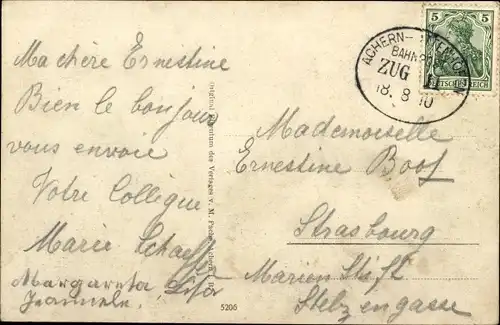 Ma chère Ernestine
Bien le bonjour
vous envoie
Votre Collègue
Marie Schaeff
Margareta Lisa
Jeannele.
Original Eigentum des Verlages v. M.
5206
5
ACHERN-
BAHNP
ZUG
18. 8 10
DEUTSCHES REICH
Mademoiselle
Ernestine Boof
Strasbourg
Marien Stift
Stelzengasse